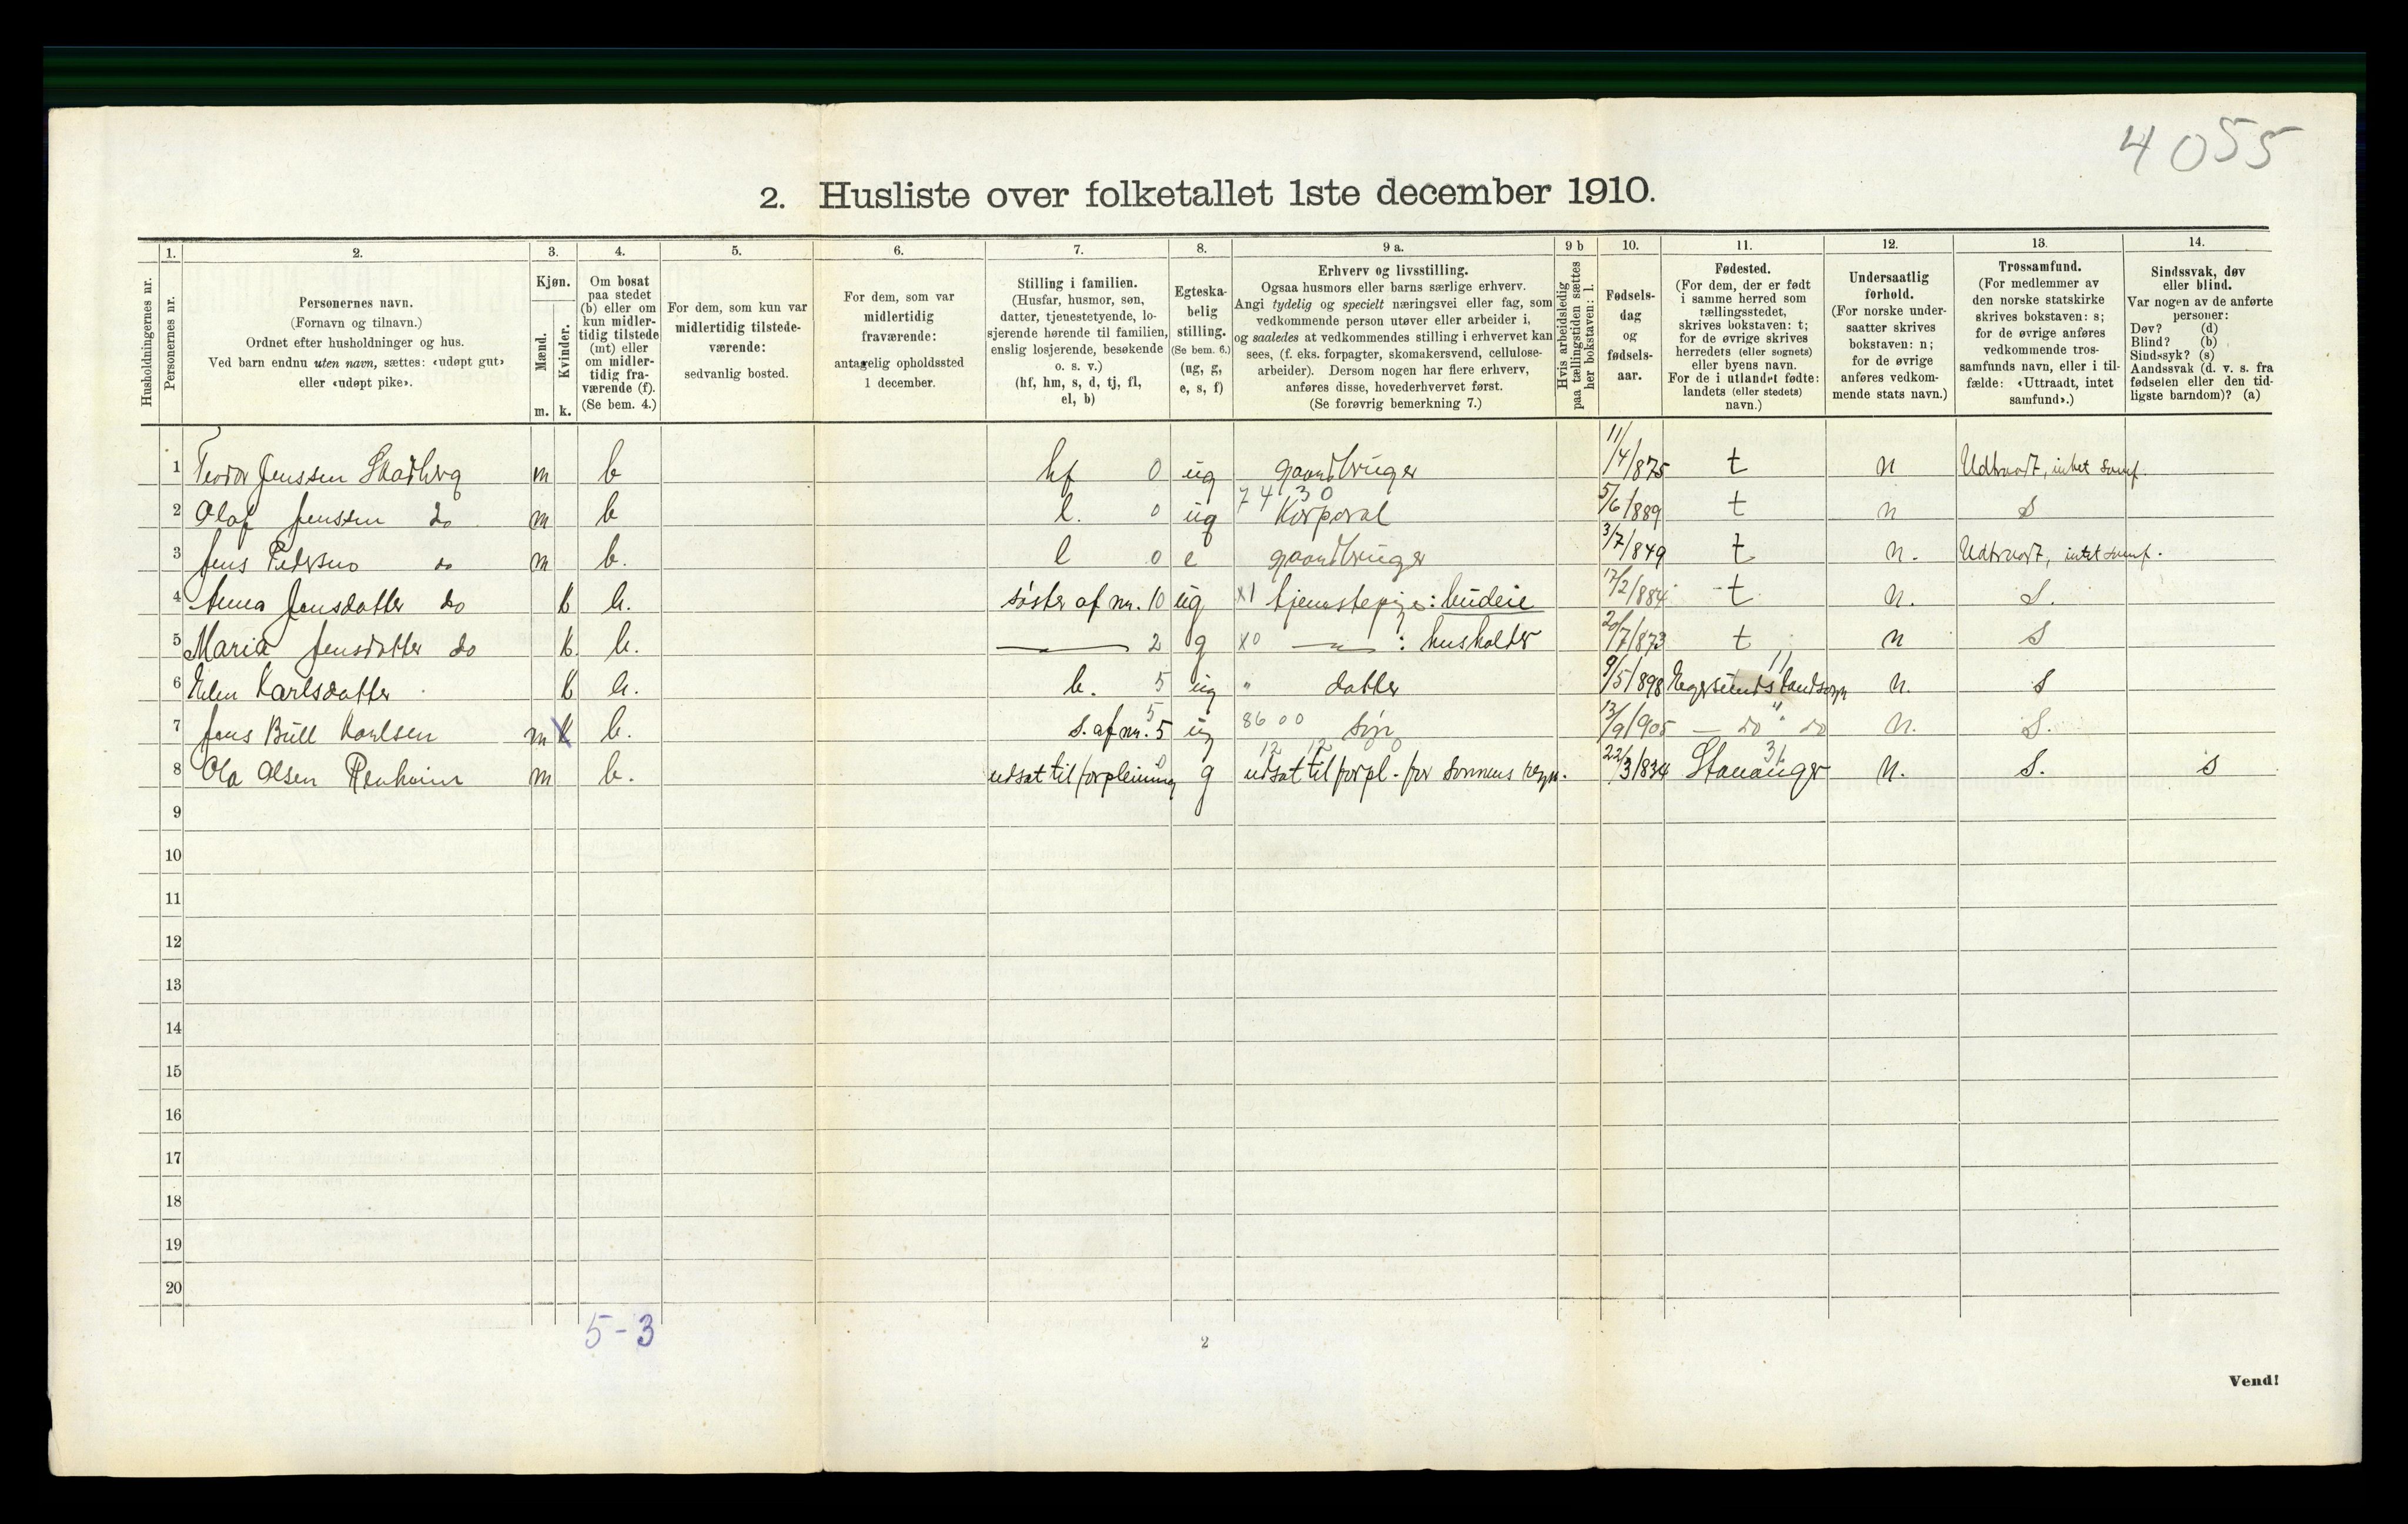 4055
2. Husliste over folketallet 1ste december 1910.
Husholdningernes nr.
1. Personernes nr.
2. Personernes navn.
(Fornavn og tilnavn.)
Ordnet efter husholdninger og hus.
Ved barn endnu uten navn, sættes: «udøpt gut»
eller «udøpt pike».
3. Kjøn.
Mænd. m.
Kvinder. k.
4. Om bosat
paa stedet
(b) eller om
kun midler-
tidig tilstede
(mt) eller
om midler-
tidig fra-
værende (f).
(Se bem. 4.)
5. For dem, som kun var
midlertidig tilstede-
værende:
sedvanlig bosted.
6. For dem, som var
midlertidig
fraværende:
antagelig opholdssted
1 december.
7. Stilling i familien.
(Husfar, husmor, søn,
datter, tjenestetyende, lo-
sjerende hørende til familien,
enslig losjerende, besøkende
o. s. v.)
(hf, hm, s, d, tj, fl,
el, b)
8. Egteska-
belig
stilling.
(Se bem. 6.)
(ug, g,
e, s, f)
9 a. Erhverv og livsstilling.
Ogsaa husmors eller barns særlige erhverv.
Angi tydelig og specielt næringsvei eller fag, som
vedkommende person utøver eller arbeider i,
og saaledes at vedkommendes stilling i erhvervet kan
sees, (f. eks. forpagter, skomakersvend, cellulose-
arbeider). Dersom nogen har flere erhverv,
anføres disse, hovederhvervet først.
(Se forøvrig bemerkning 7.)
9 b Hvis arbeidsledig
paa tællingstiden sættes
her bokstaven: l.
10. Fødsels-
dag
og
fødsels-
aar.
11. Fødested.
(For dem, der er født
i samme herred som
tællingsstedet,
skrives bokstaven: t;
for de øvrige skrives
herredets (eller sognets)
eller byens navn.
For de i utlandet fødte:
landets (eller stedets)
navn.)
12. Undersaatlig
forhold.
(For norske under-
saatter skrives
bokstaven: n;
for de øvrige
anføres vedkom-
mende stats navn.)
13. Trossamfund.
(For medlemmer av
den norske statskirke
skrives bokstaven: s;
for de øvrige anføres
vedkommende tros-
samfunds navn, eller i til-
fælde: «Uttraadt, intet
samfund».)
14. Sindssvak, døv
eller blind.
Var nogen av de anførte
personer:
Døv? (d)
Blind? (b)
Sindssyk? (s)
Aandssvak (d. v. s. fra
fødselen eller den tid-
ligste barndom)? (a)
1 Teodor Jenssen Skadberg m b hf 0 ug gaardbruger 11/4/875 t n Udtraadt, intet samf.
2 Olaf Jenssen do m b l. 0 ug 74 30 Korporal 5/6/889 t n S
3 Jens Pedersen do m b. l 0 e gaardbruger 3/7/849 t n. Udtraadt, intet samf.
4 Anna Jensdatter do k b. søster af nr. 10 ug x1 tjenestepige: budeie 17/2/884 t n. S.
5 Maria Jensdatter do k. b. — 2 g x0 — : husholder 20/7/873 t n S
6 Karlsdatter k b. b. 5 ug " datter 9/5/898 11 Egersunds landsogn n. S
7 Jens Bull Karlsen m k b. s. af nr. 5 5 ug 86 00 søn 13/9/905 — do " do n. S.
8 Ola Olsen m b. udsat til forpleining g 12 12 0 udsat til forpl. for sønnens regn. 22/3/834 31 Stavanger n. S. s
9
10
11
12
13
14
15
16
17
18
19
20
5-3
2
Vend!